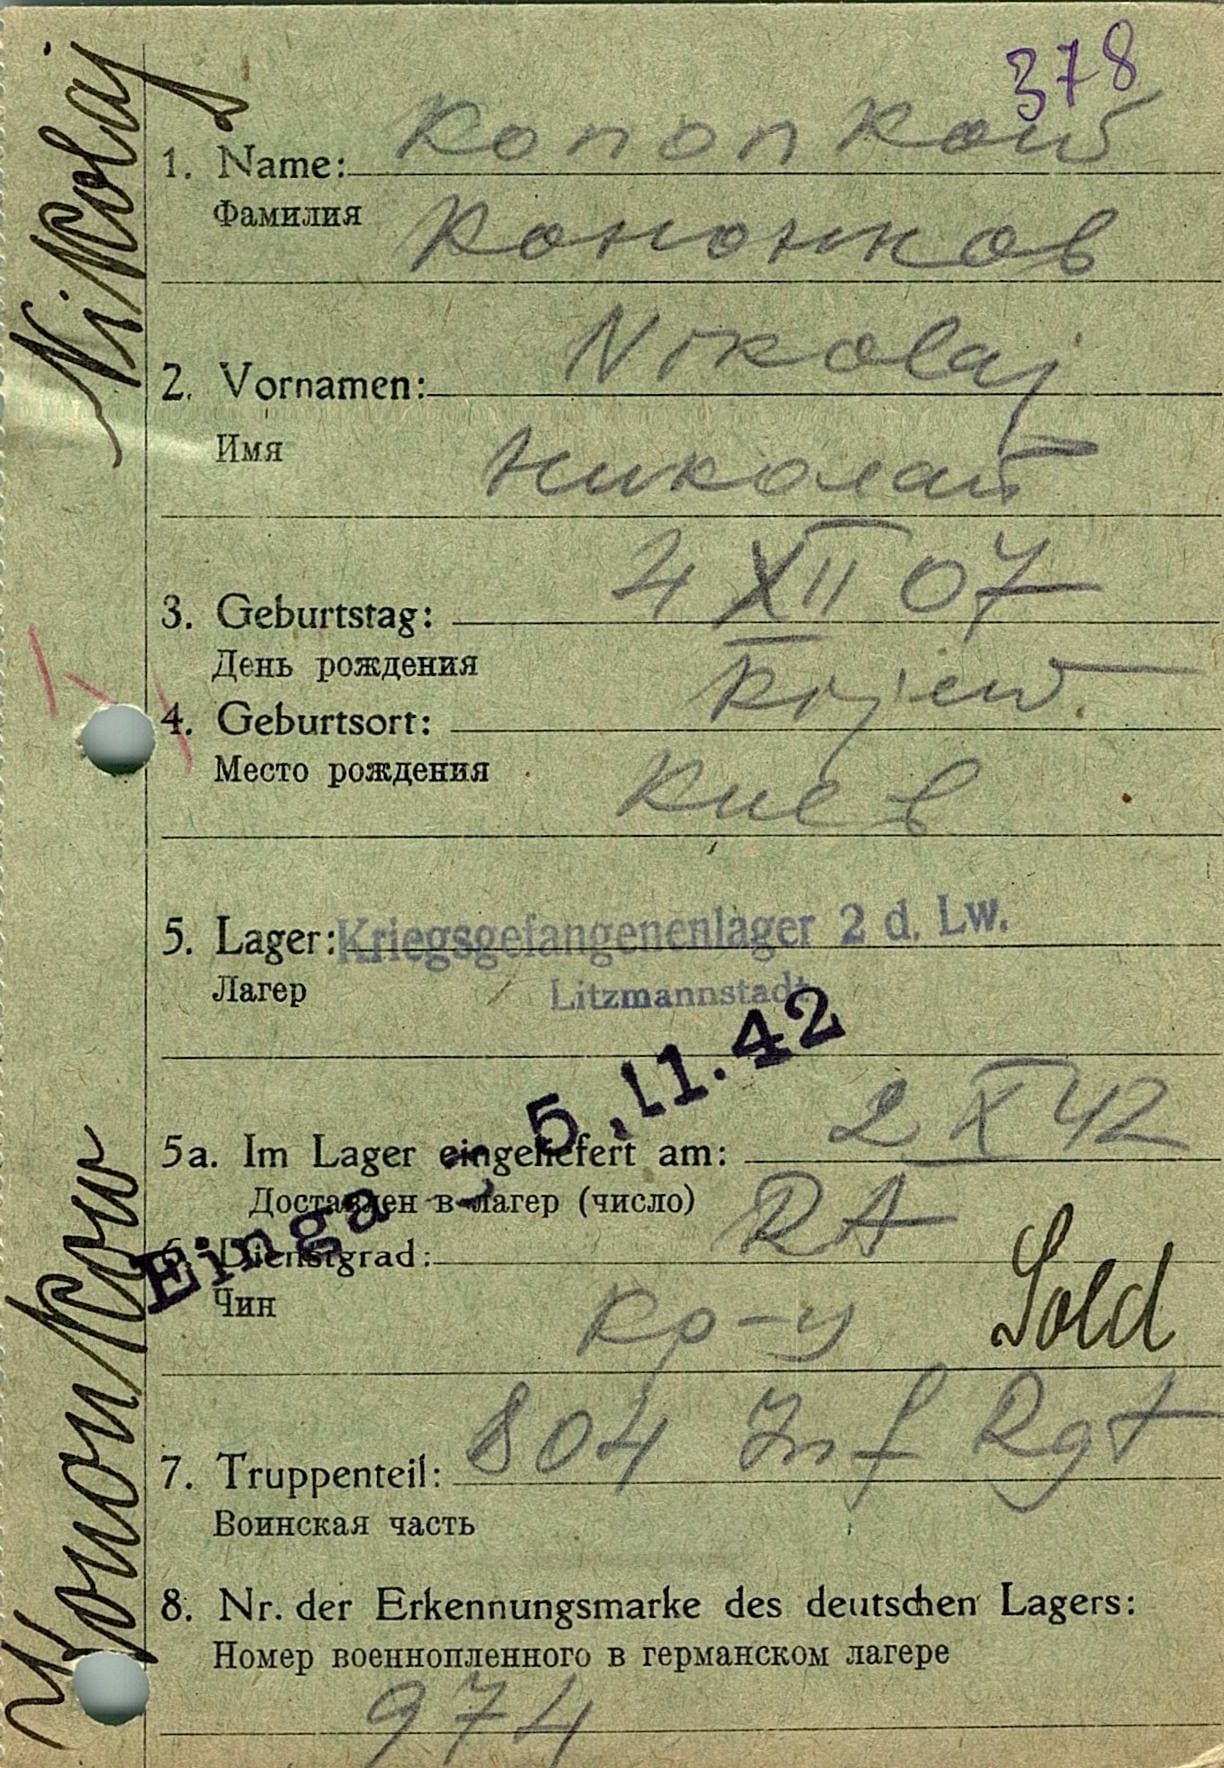 378
Kononkow Nikolaj
1. Name: Kononkow
Фамилия Кононков
2. Vornamen: Nikolaj
Имя Николай
3. Geburtstag: 4 XII 07
День рождения
4. Geburtsort: Kijew
Место рождения Киев
5. Lager: Kriegsgefangenenlager 2 d. Lw.
Лагер Litzmannstadt
5a. Im Lager eingeliefert am: 2 X 42
Доставлен в лагер (число)
Einga - 5.11.42
6. Dienstgrad: RA
Чин Кр-ц Sold
7. Truppenteil: 804 Inf Rgt
Воинская часть
8. Nr. der Erkennungsmarke des deutschen Lagers:
Номер военнопленного в германском лагере
974